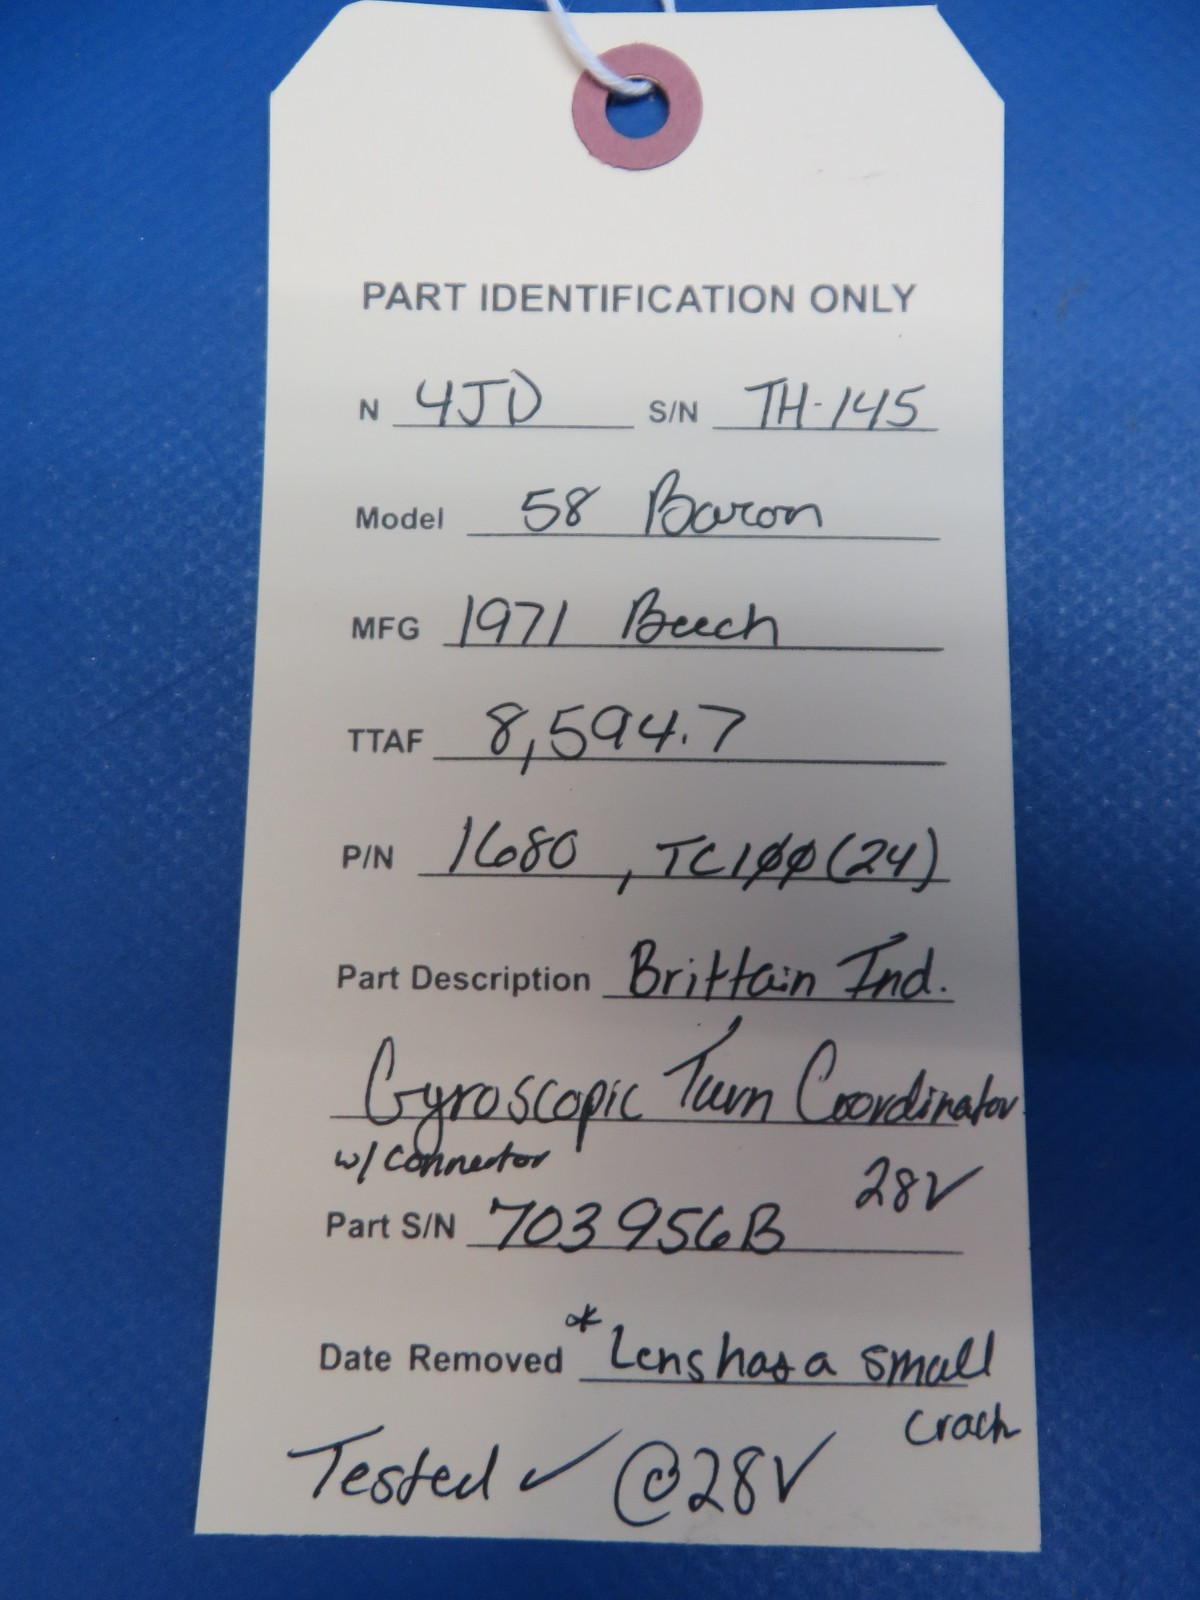 PART IDENTIFICATION ONLY
N 4JD S/N TH-145
Model 58 Baron
MFG 1971 Beech
TTAF 8,594.7
P/N 1680, TC1ØØ(24)
Part Description Brittain Ind.
Gyroscopic Turn Coordinator
w/ Connector 28V
Part S/N 703956B
Date Removed *Lens has a small
crack
Tested ✓ @28V